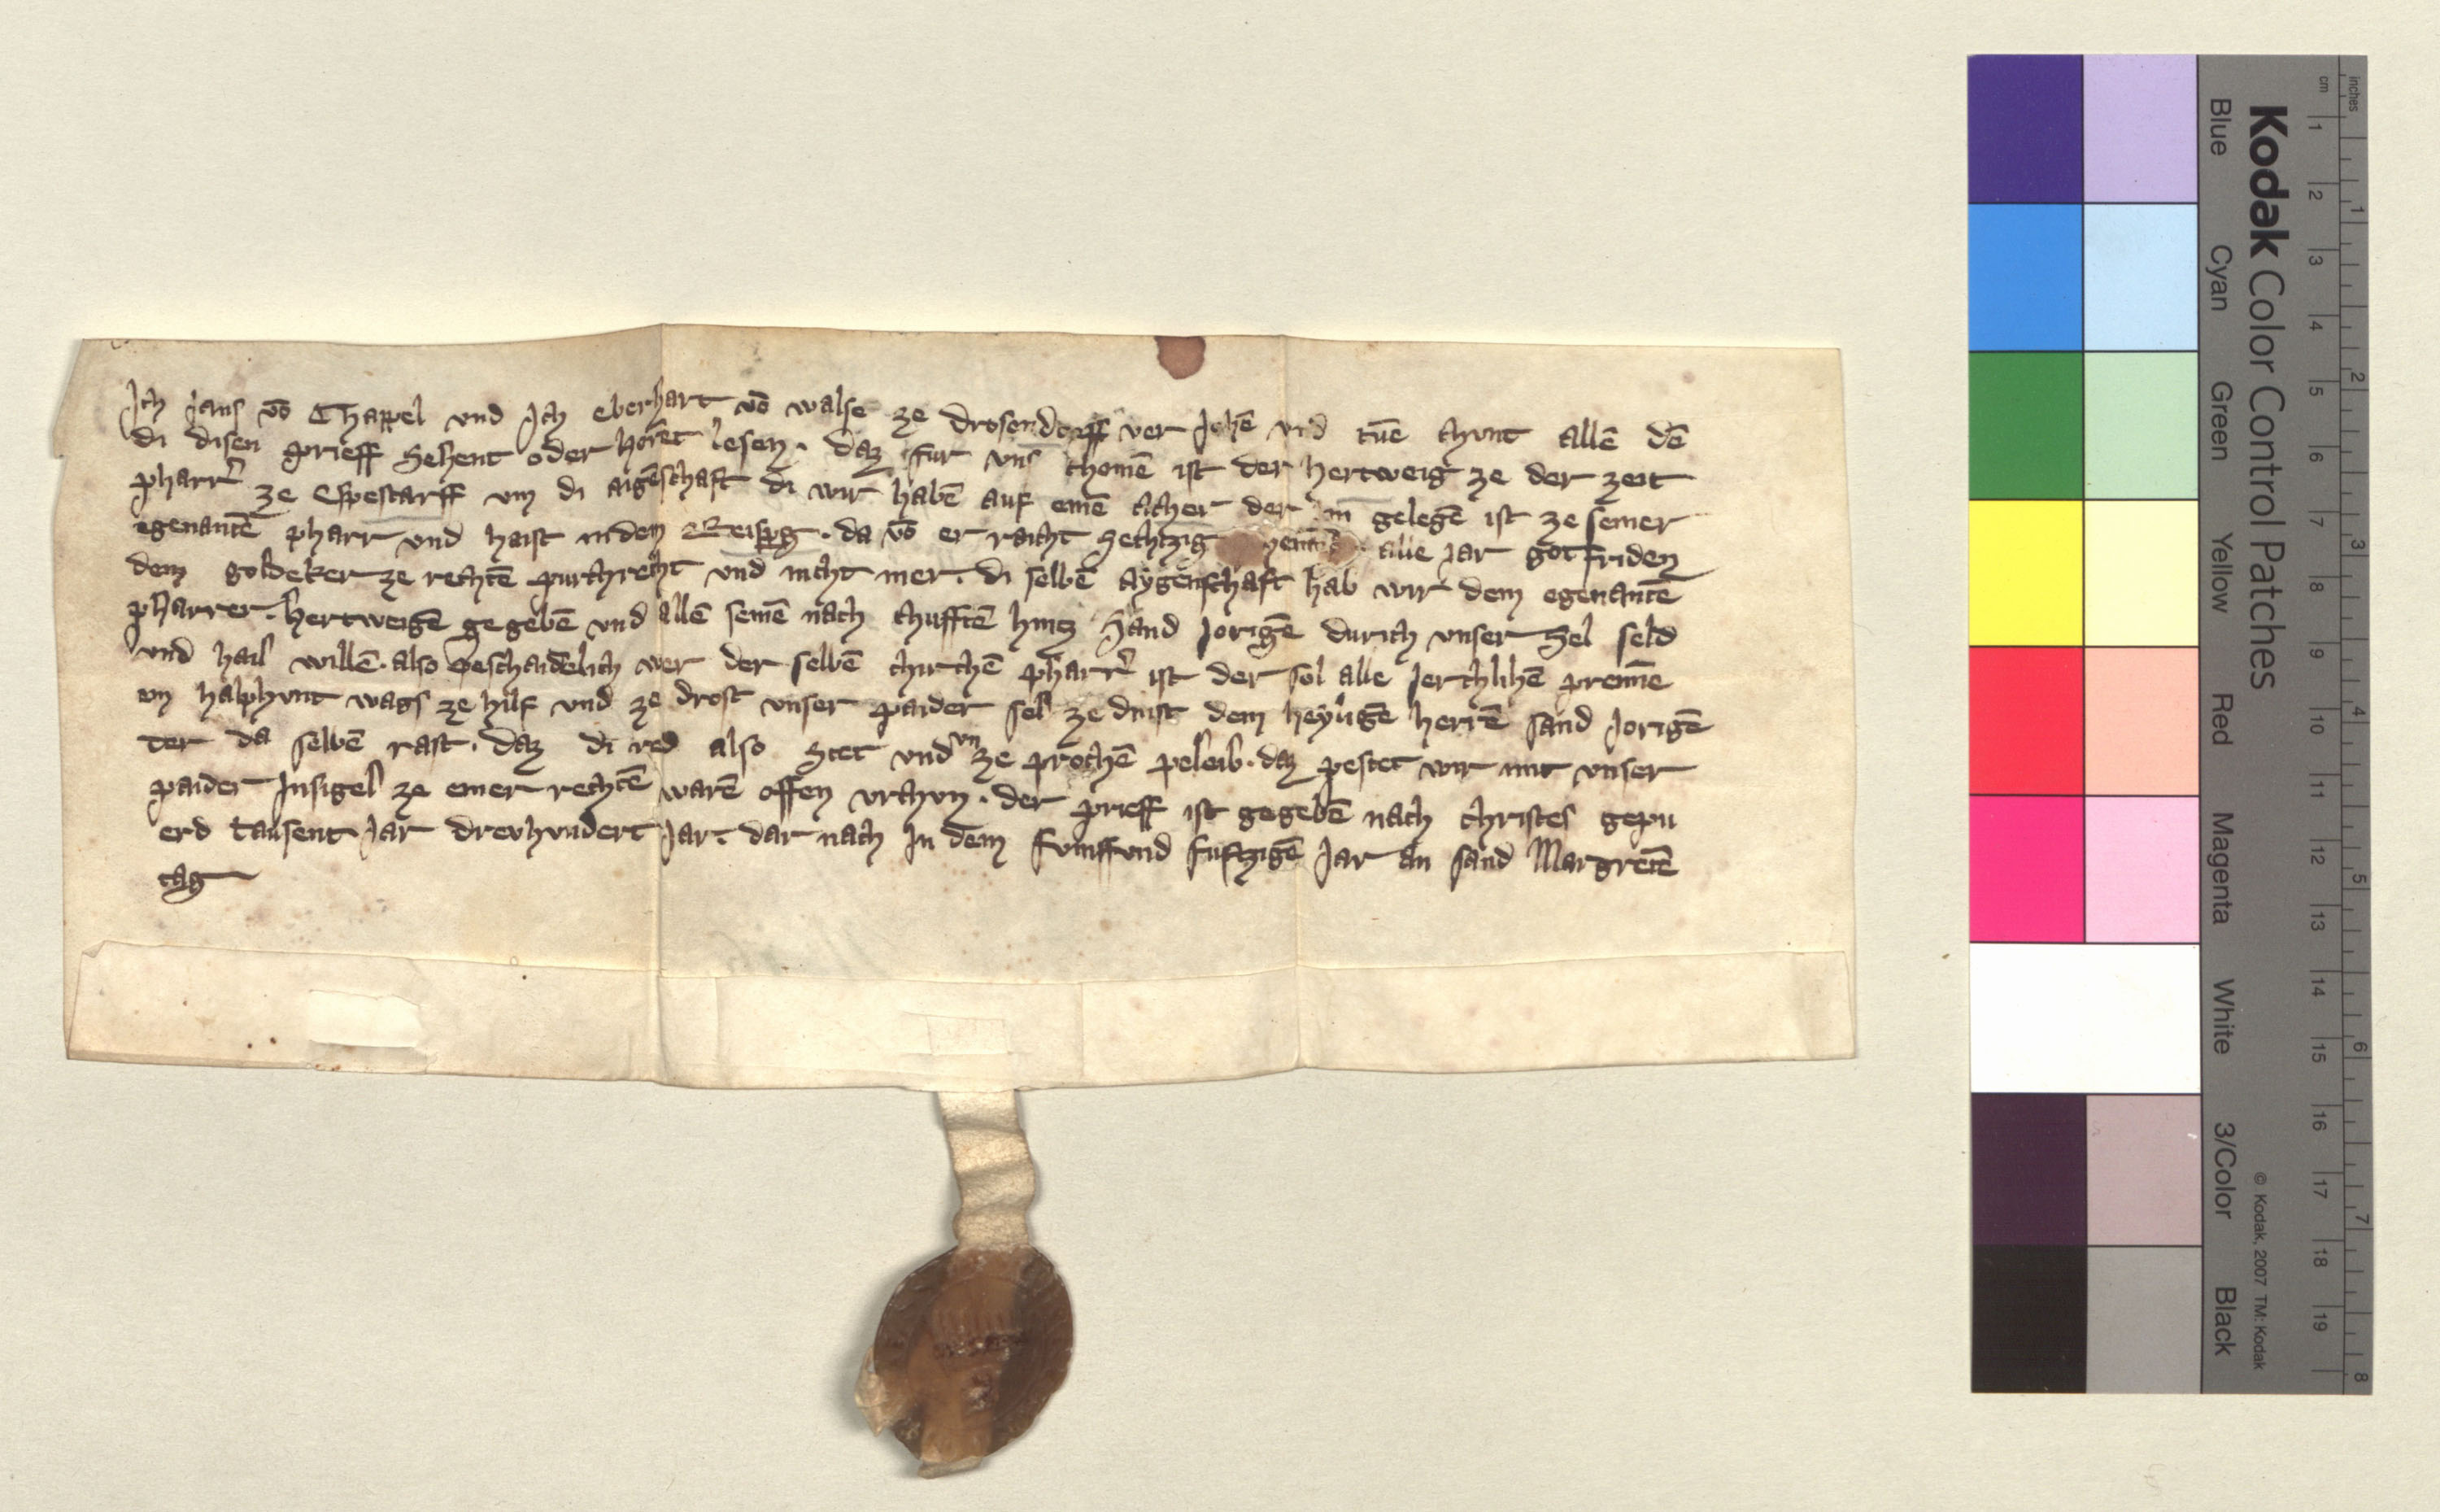 Ich Jans vō Chappel vnd Ich eberhart vō walse ze drosendorff ver Jehē vnd tuē chvnt allē dē
di disen prieff Sehent oder horēt lesen. daz fur vns chomē ist der hertweig ze der zeit
pharr̄ ze Espestarff vm di aigēschaft di wir habē auf einē acher der in gelegē ist ze seiner
egenantē pharr vnd haist in dem Reisperg. da vō er raicht Sechtzig alle Jar gotfriden
dem goldeker ze rechtē purchrecht vnd nicht mer. di selbē aygenschaft hab wir dem egenantē
pharrer. hertweigē gegebē vnd allē seinē nach chufftē hintz Sand Jorigē durich vnser Sel seld
vnd hail willē. also beschaidēlich wer der selbē chirchē pharr̄ ist der sol alle Jerchlihē prennē
ein halphvnt wags ze hilf vnd ze drost vnser paider sel ze dinst dem heyligē herrē sand Jorigē
der da selbē rast. daz di red also Stet vnd vn ze prochē peleib. daz pestet wir mit vnser
paider Insigel ze einer rechtē warē offen vrchvn. der prieff ist gegebē nach christes gepu
erd tausent Jar drevhvndert Jar. dar nach In dem fvmffvnd fuftzigē Jar an sand Margretē
tag
Kodak Color Control Patches
Blue Cyan Green Yellow Red Magenta White 3/Color Black
© Kodak, 2007 TM: Kodak
cm 1 2 3 4 5 6 7 8 9 10 11 12 13 14 15 16 17 18 19
inches 1 2 3 4 5 6 7 8